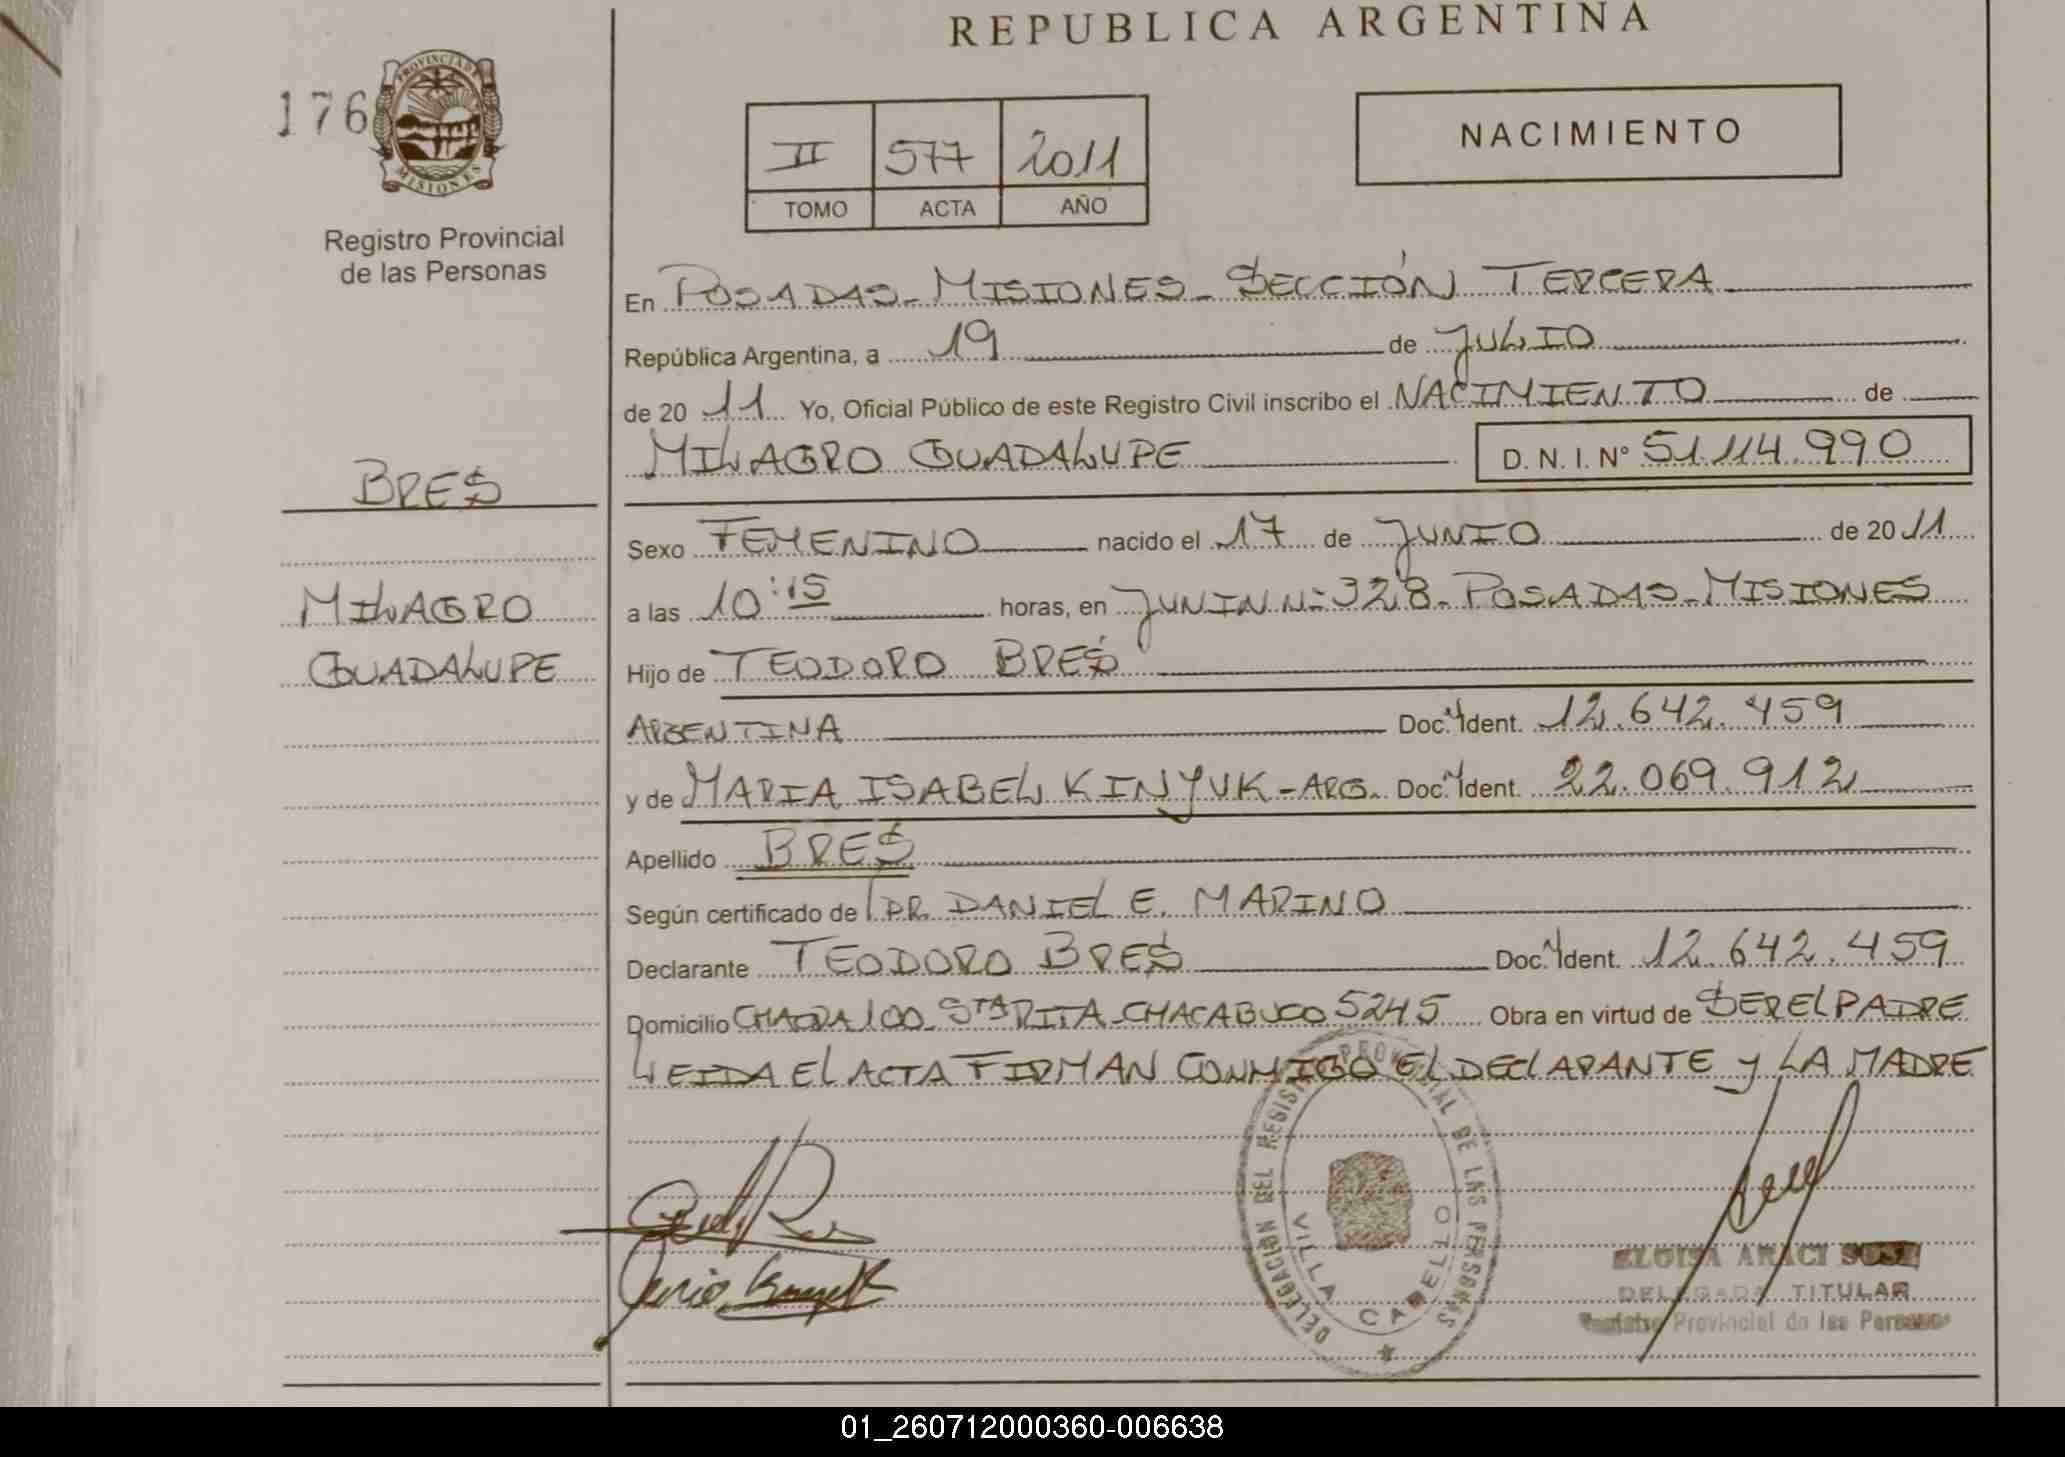 REPUBLICA ARGENTINA
176
PROVINCIA DE
MISIONES
Registro Provincial
de las Personas
II 577 2011
TOMO ACTA AÑO
NACIMIENTO
En POSADAS-MISIONES-SECCIÓN TERCERA
República Argentina, a 19 de JULIO
de 20 11 Yo, Oficial Público de este Registro Civil inscribo el NACIMIENTO de
MILAGRO GUADALUPE D. N. I. N° 51.114.990
BRES
MILAGRO
GUADALUPE
Sexo FEMENINO nacido el 17 de JUNIO de 20 11
a las 10:15 horas, en JUNIN N=328-POSADAS-MISIONES
Hijo de TEODORO BRES
ARGENTINA Doc. Ident. 12.642.459
y de MARIA ISABEL KINYUK-ARG. Doc. Ident. 22.069.912
Apellido BRES
Según certificado de DR. DANIEL E. MARINO
Declarante TEODORO BRES Doc. Ident. 12.642.459
Domicilio CHACRA 100-STA RITA-CHACABUCO 5245 Obra en virtud de SER EL PADRE
LEIDA EL ACTA FIRMAN CONMIGO EL DECLARANTE Y LA MADRE
DELEGACION DEL REGISTRO PROVINCIAL DE LAS PERSONAS
VILLA CABELLO
ELOISA ARACI
DELEGADA TITULAR
Registro Provincial de las Personas
01_260712000360-006638